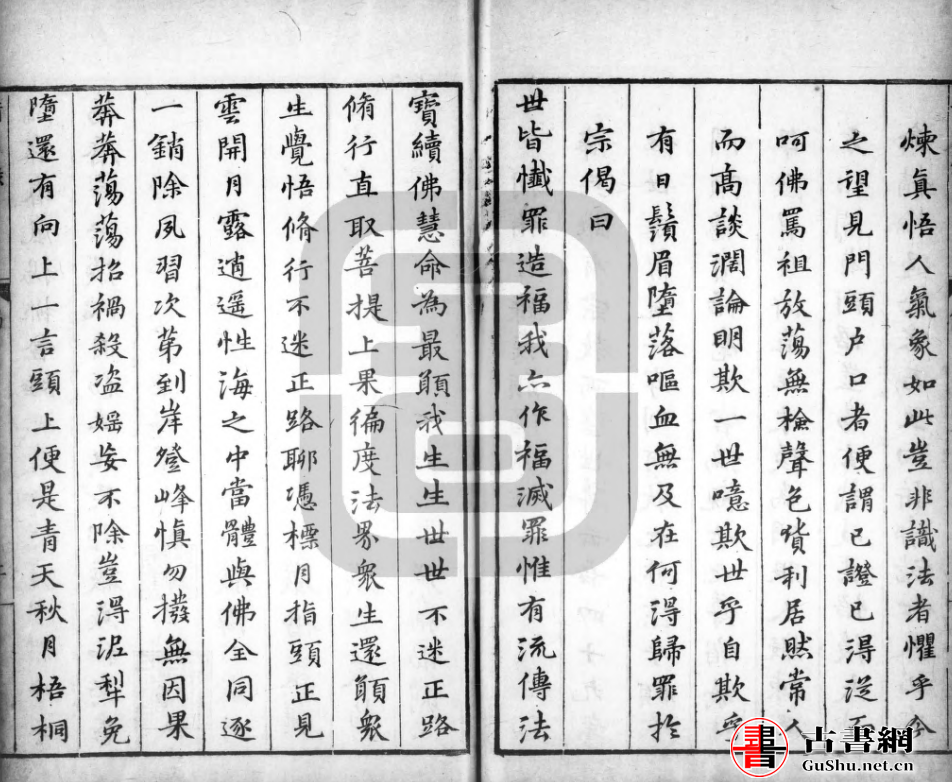 煉真悟人氣象如此豈非識法者懼乎今
之望見門頭户口者便謂已證已淂泛而
呵佛罵祖放蕩無檢聲色貨利居然常人
而髙談濶論明欺一世噫欺世乎自欺乎
有日鬚眉墮落嘔血無及在何淂歸罪扵
宗偈曰
世皆懺罪造福我亦作福滅罪惟有流傳法
寶續佛慧命為最願我生生世世不迷正路
脩行直取菩提上果徧度法界衆生還願衆
生覺悟脩行不迷正路聊憑標月指頭正見
雲開月露逍遥性海之中當體與佛仝同逐
一銷除夙習次第到岸登峰慎勿撥無因果
莽莽蕩蕩招禍殺盗婬妄不除豈淂泥犁免
墮還有向上一言頭上便是青天秋月梧桐
書 古書網
GuShu.net.cn